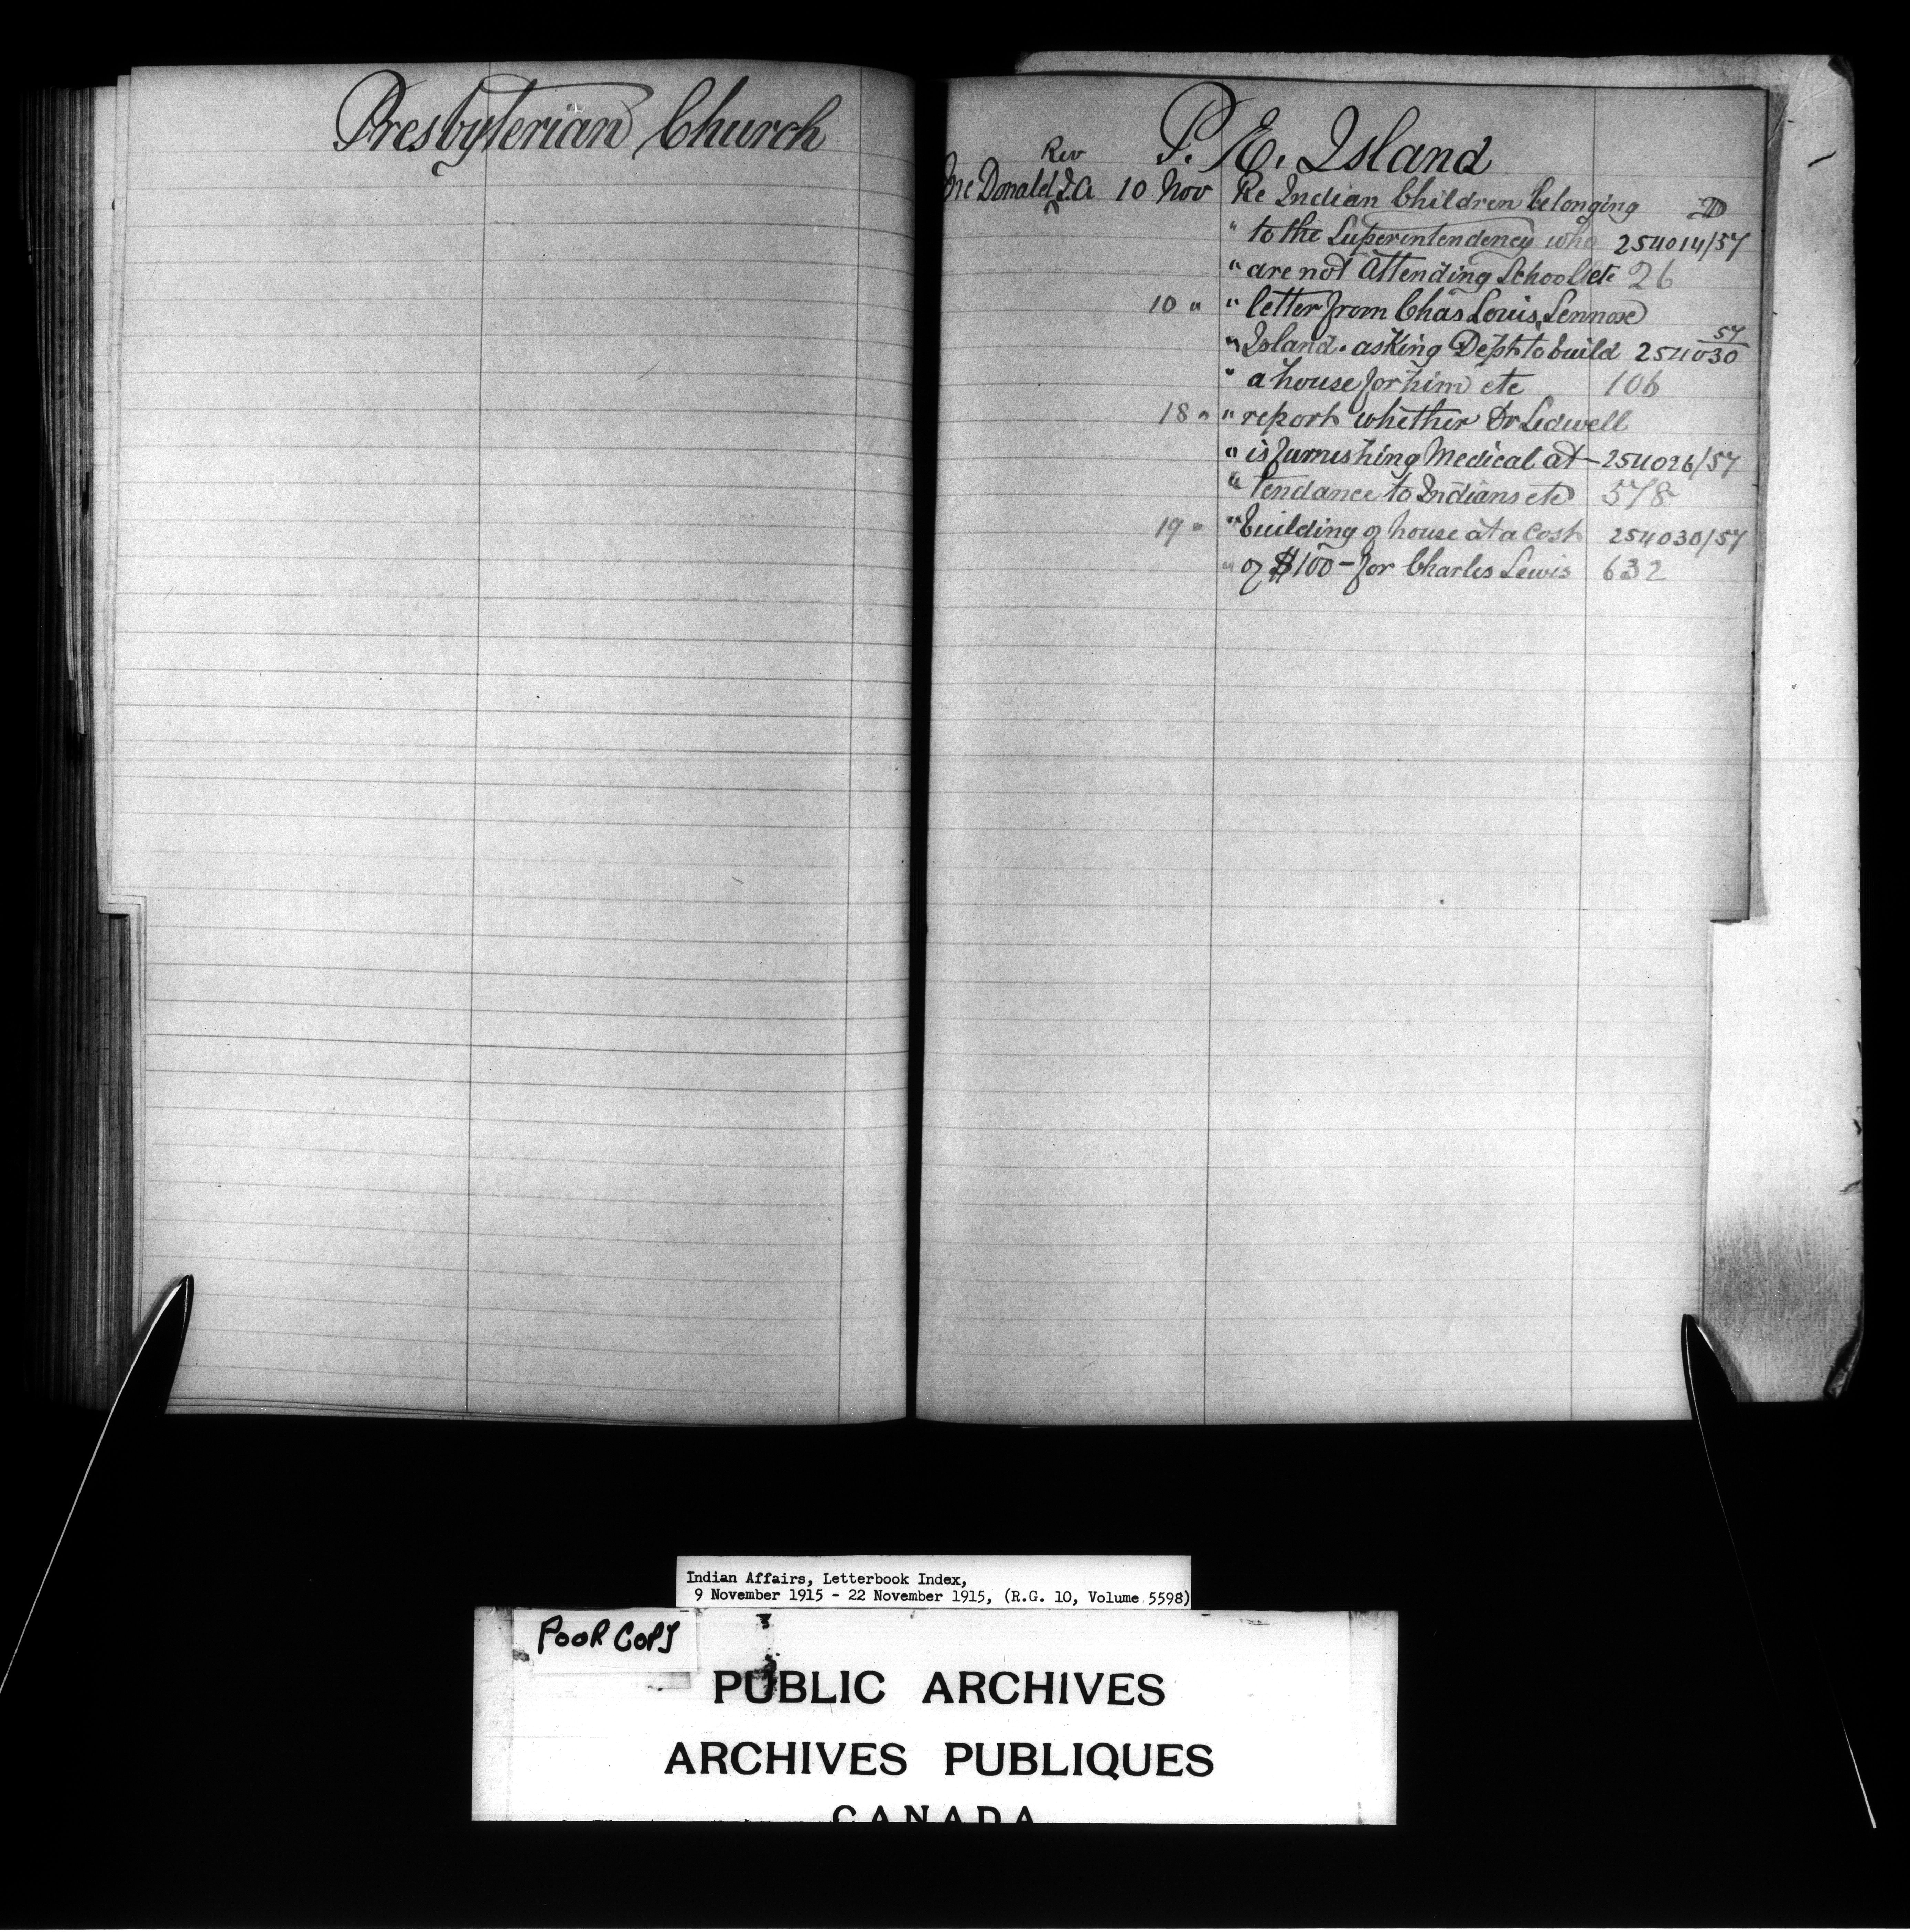 Presbyterian Church
P. E. Island
Rev
McDonald J.A 10 Nov Re Indian Children belonging
" to the Superintendency who 254014/57
" are not Attending School etc 26
10 " " letter from Chas Louis, Lennox
" Island. asking Dept to build 254030 57
" a house for him etc 106
18 " " report whether Dr Ledwell
" is furnishing Medical at- 254026/57
" tendance to Indians etc 578
19 " " building of house at a Cost 254030/57
" of $100- for Charles Lewis 632
Indian Affairs, Letterbook Index,
9 November 1915 - 22 November 1915, (R.G. 10, Volume 5598)
POOR COPY
PUBLIC ARCHIVES
ARCHIVES PUBLIQUES
CANADA